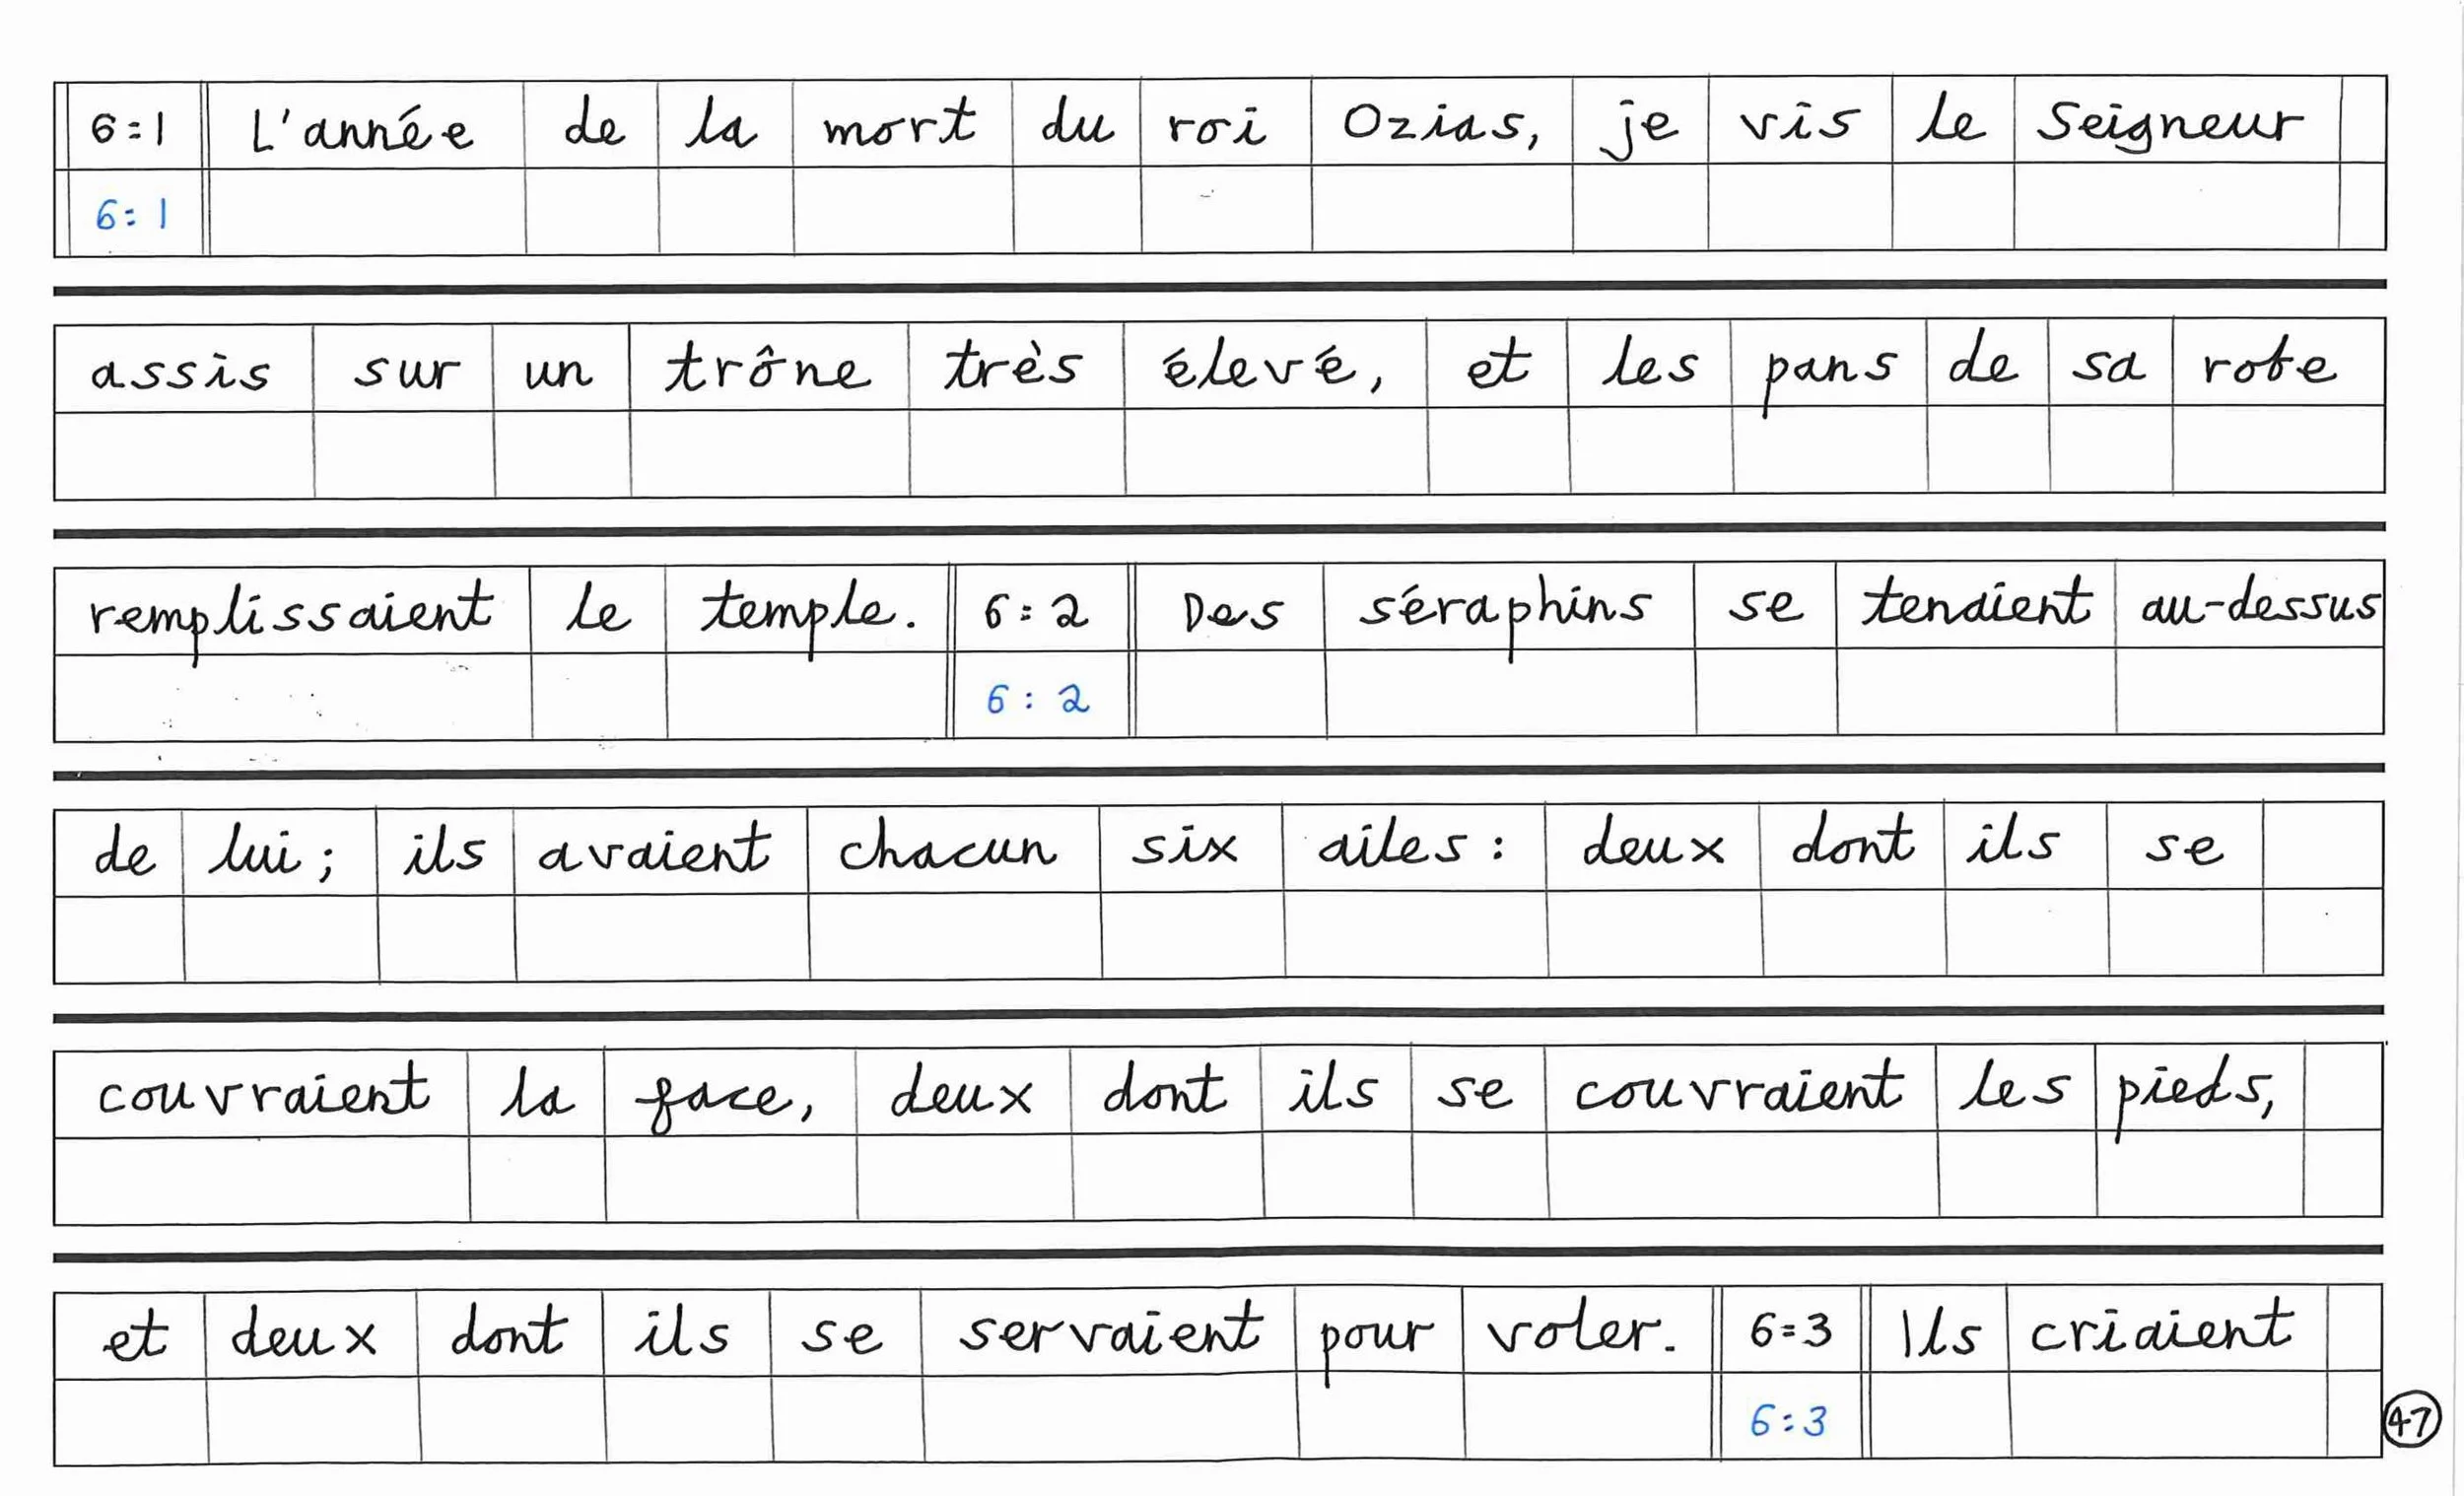 6:1 L'année de la mort du roi Ozias, je vis le Seigneur
6:1
assis sur un trône très élevé, et les pans de sa robe
remplissaient le temple. 6:2 Des séraphins se tenaient au-dessus
6:2
de lui; ils avaient chacun six ailes: deux dont ils se
couvraient la face, deux dont ils se couvraient les pieds,
et deux dont ils se servaient pour voler. 6:3 Ils criaient
6:3
47